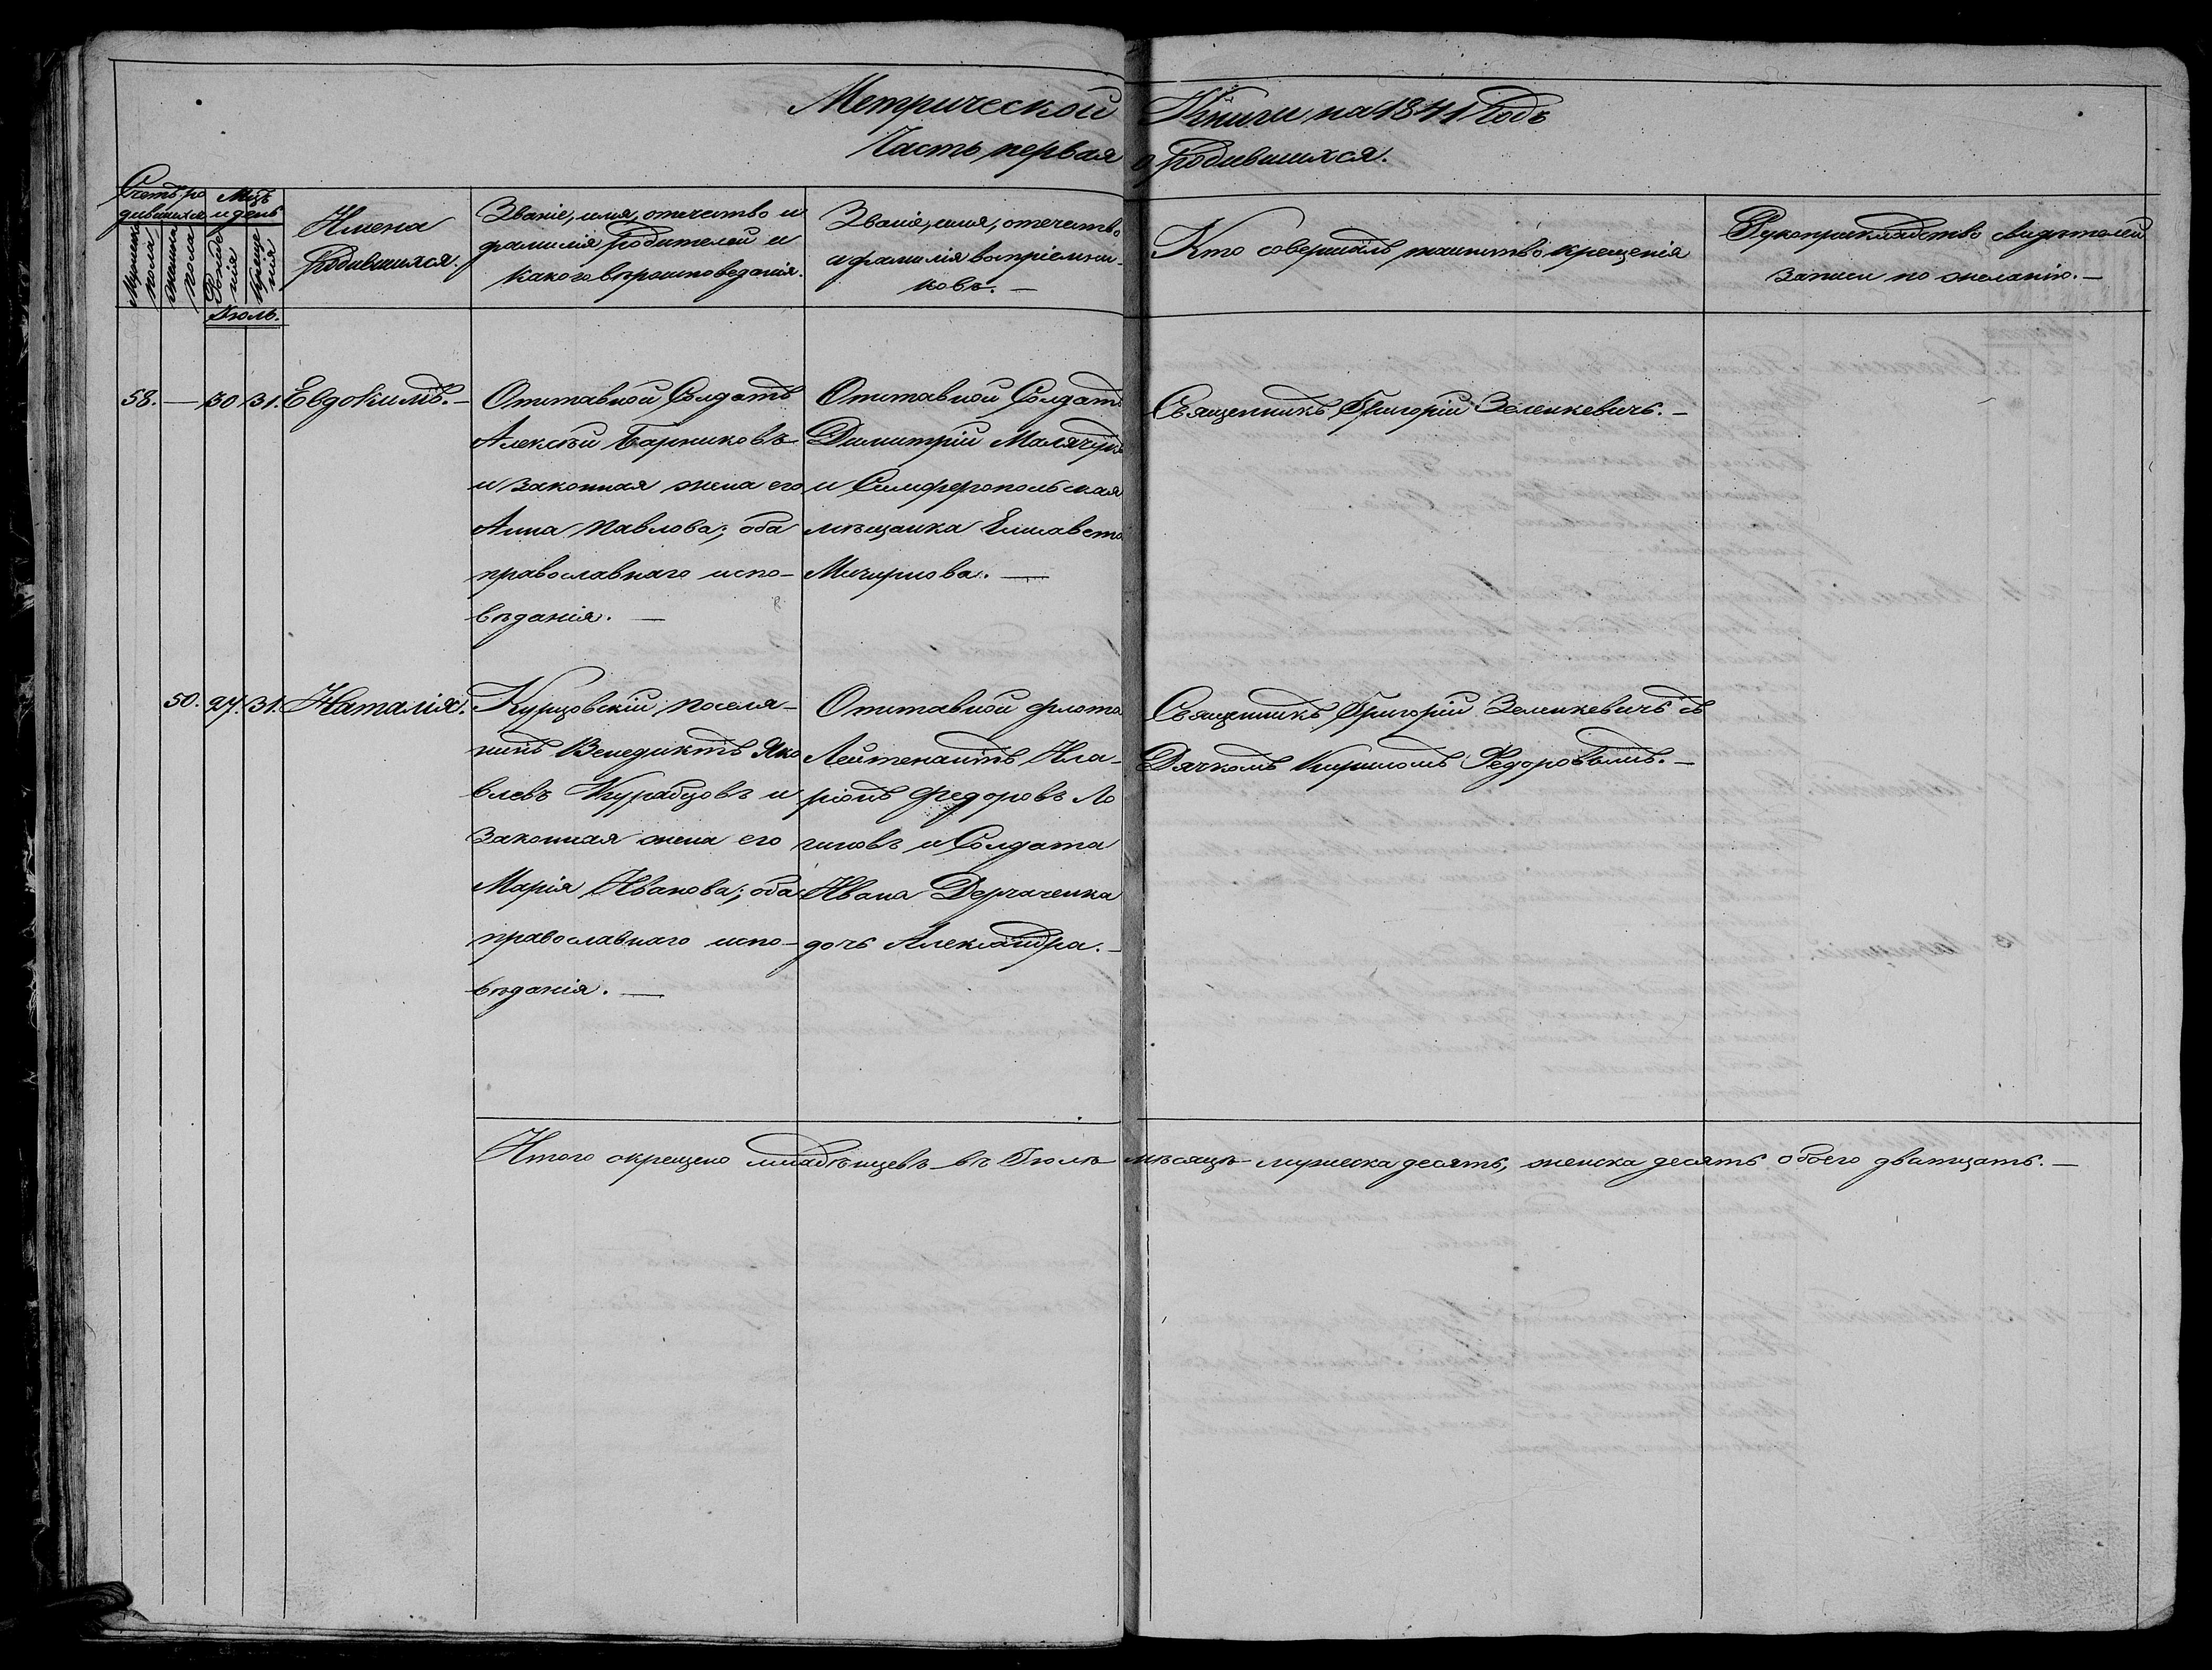 Метрической Книги на 1841 Годъ
Часть первая о Родившихся.
Счетъ ро
дившихся
Мужеска
пола
Женска
пола
Мцъ
и день
Рожде
нія
Креще
нія
Имена
Родившихся.
Званіе, имя, отечество и
фамилія Родителей и
какого вѣроисповеданія.
Званіе, имя, отечество
и фамилія воспріемни-
ковъ. —
Кто совершилъ таинство крещенія
Рукоприкладство свидѣтелей
записи по желанію. —
Іюль.
58. — 30 31. Евдокимъ. —
Отставной Солдатъ
Алексѣй Барниковъ
и законная жена его
Анна Павлова; оба
православнаго испо-
вѣданія. —
Отставной Солдатъ
Димитрій
и Симферопольская
мѣщанка Елисавета
Мичурнова. —
Священникъ Григорій Зеленкевичъ. —
50. 27. 31. Наталія.
Курцовскій поселя-
нинъ Венедиктъ Яко
влевъ Курабцовъ и
законная жена его
Марія Иванова; оба
православнаго испо-
вѣданія. —
Отставной флота
Лейтенантъ Ила-
ріонъ Федоровъ Ло
гиновъ и Солдата
Ивана Дергаченка
дочь Александра. —
Священникъ Григорій Зеленкевичъ съ
Дячкомъ Кириломъ Федоровымъ. —
Итого окрещено младѣнцевъ въ Іюлѣ мѣсяцѣ мужеска десять, женска десять обоего дватцать. —